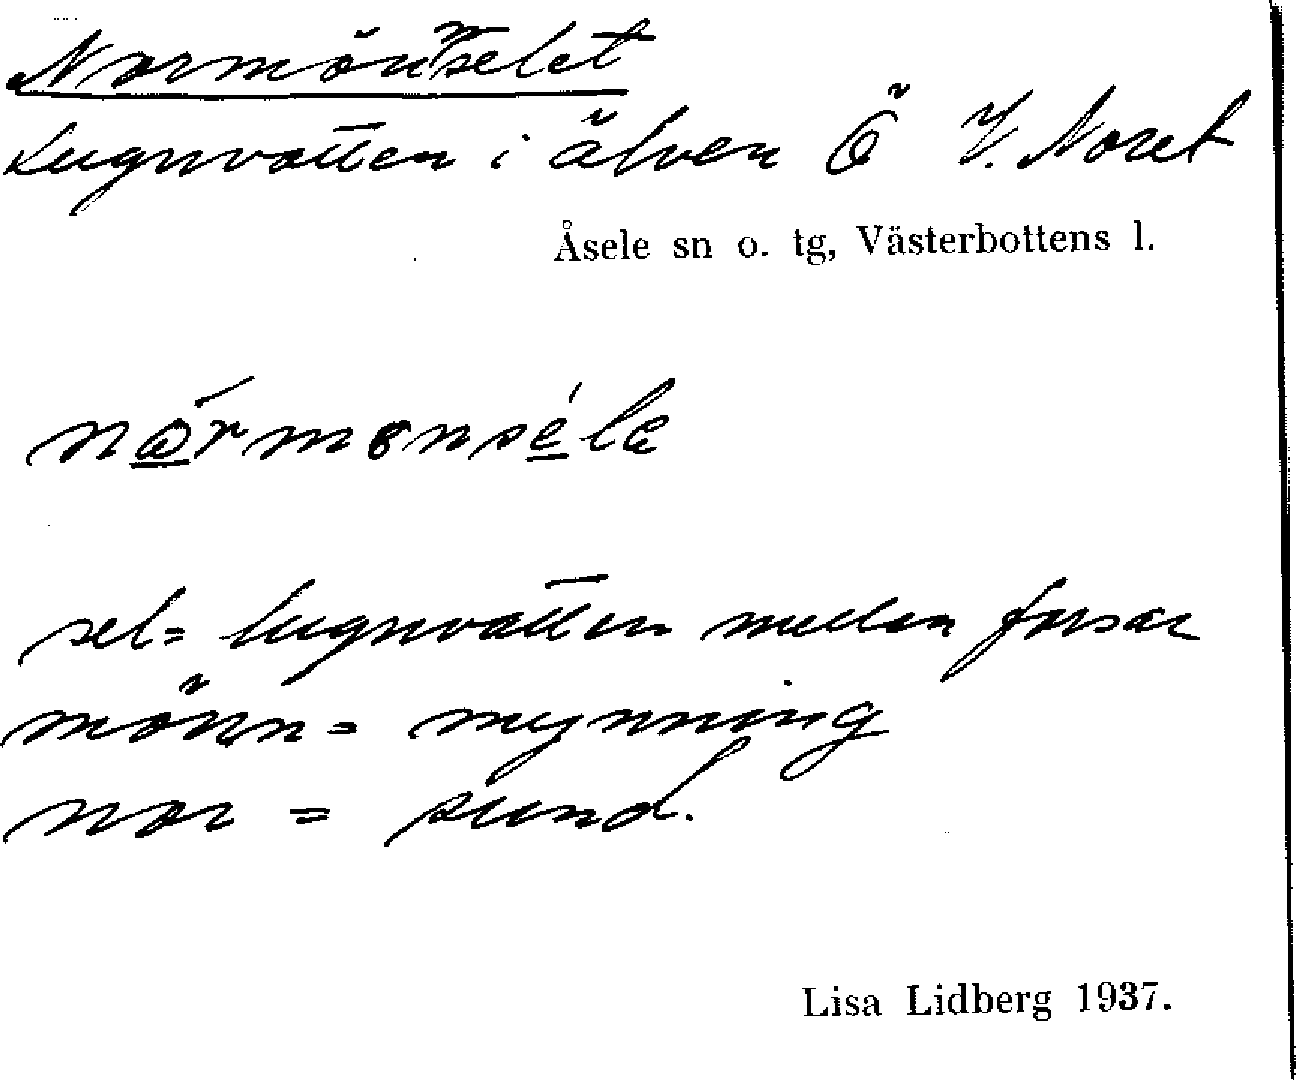 Normönnselet
Lugnvatten i älven Ö V. Noret
Åsele sn o. tg, Västerbottens l.
nórmønséle
sel= lugnvatten mellan forsar
mönn= mynning
nor = sund.
Lisa Lidberg 1937.